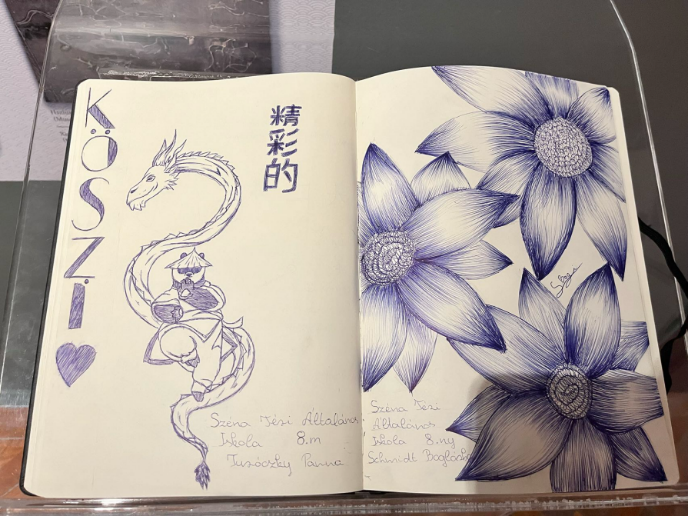 KÖSZI
精彩的
Széna Téri Általános
Iskola 8.m
Panna
Széna Téri
Általános
Iskola 8.ny
Schmidt